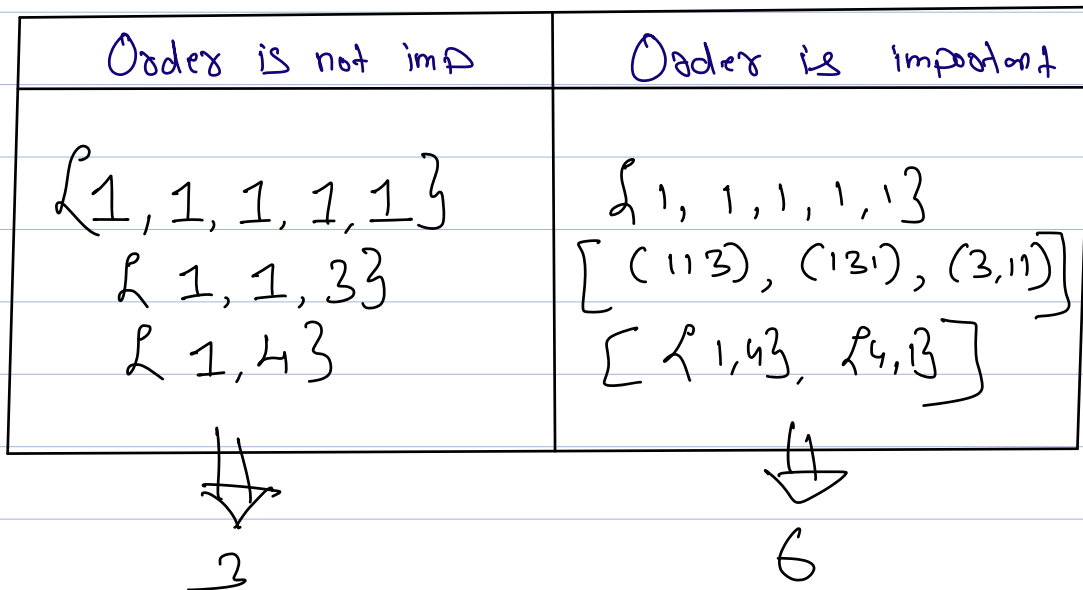 Order is not imp
Order is important
{1, 1, 1, 1, 1}
{ 1, 1, 3}
{ 1, 4}
{1, 1, 1, 1, 1}
[ (113), (131), (3,11)]
[ {1,4}, {4,1} ]
3
6